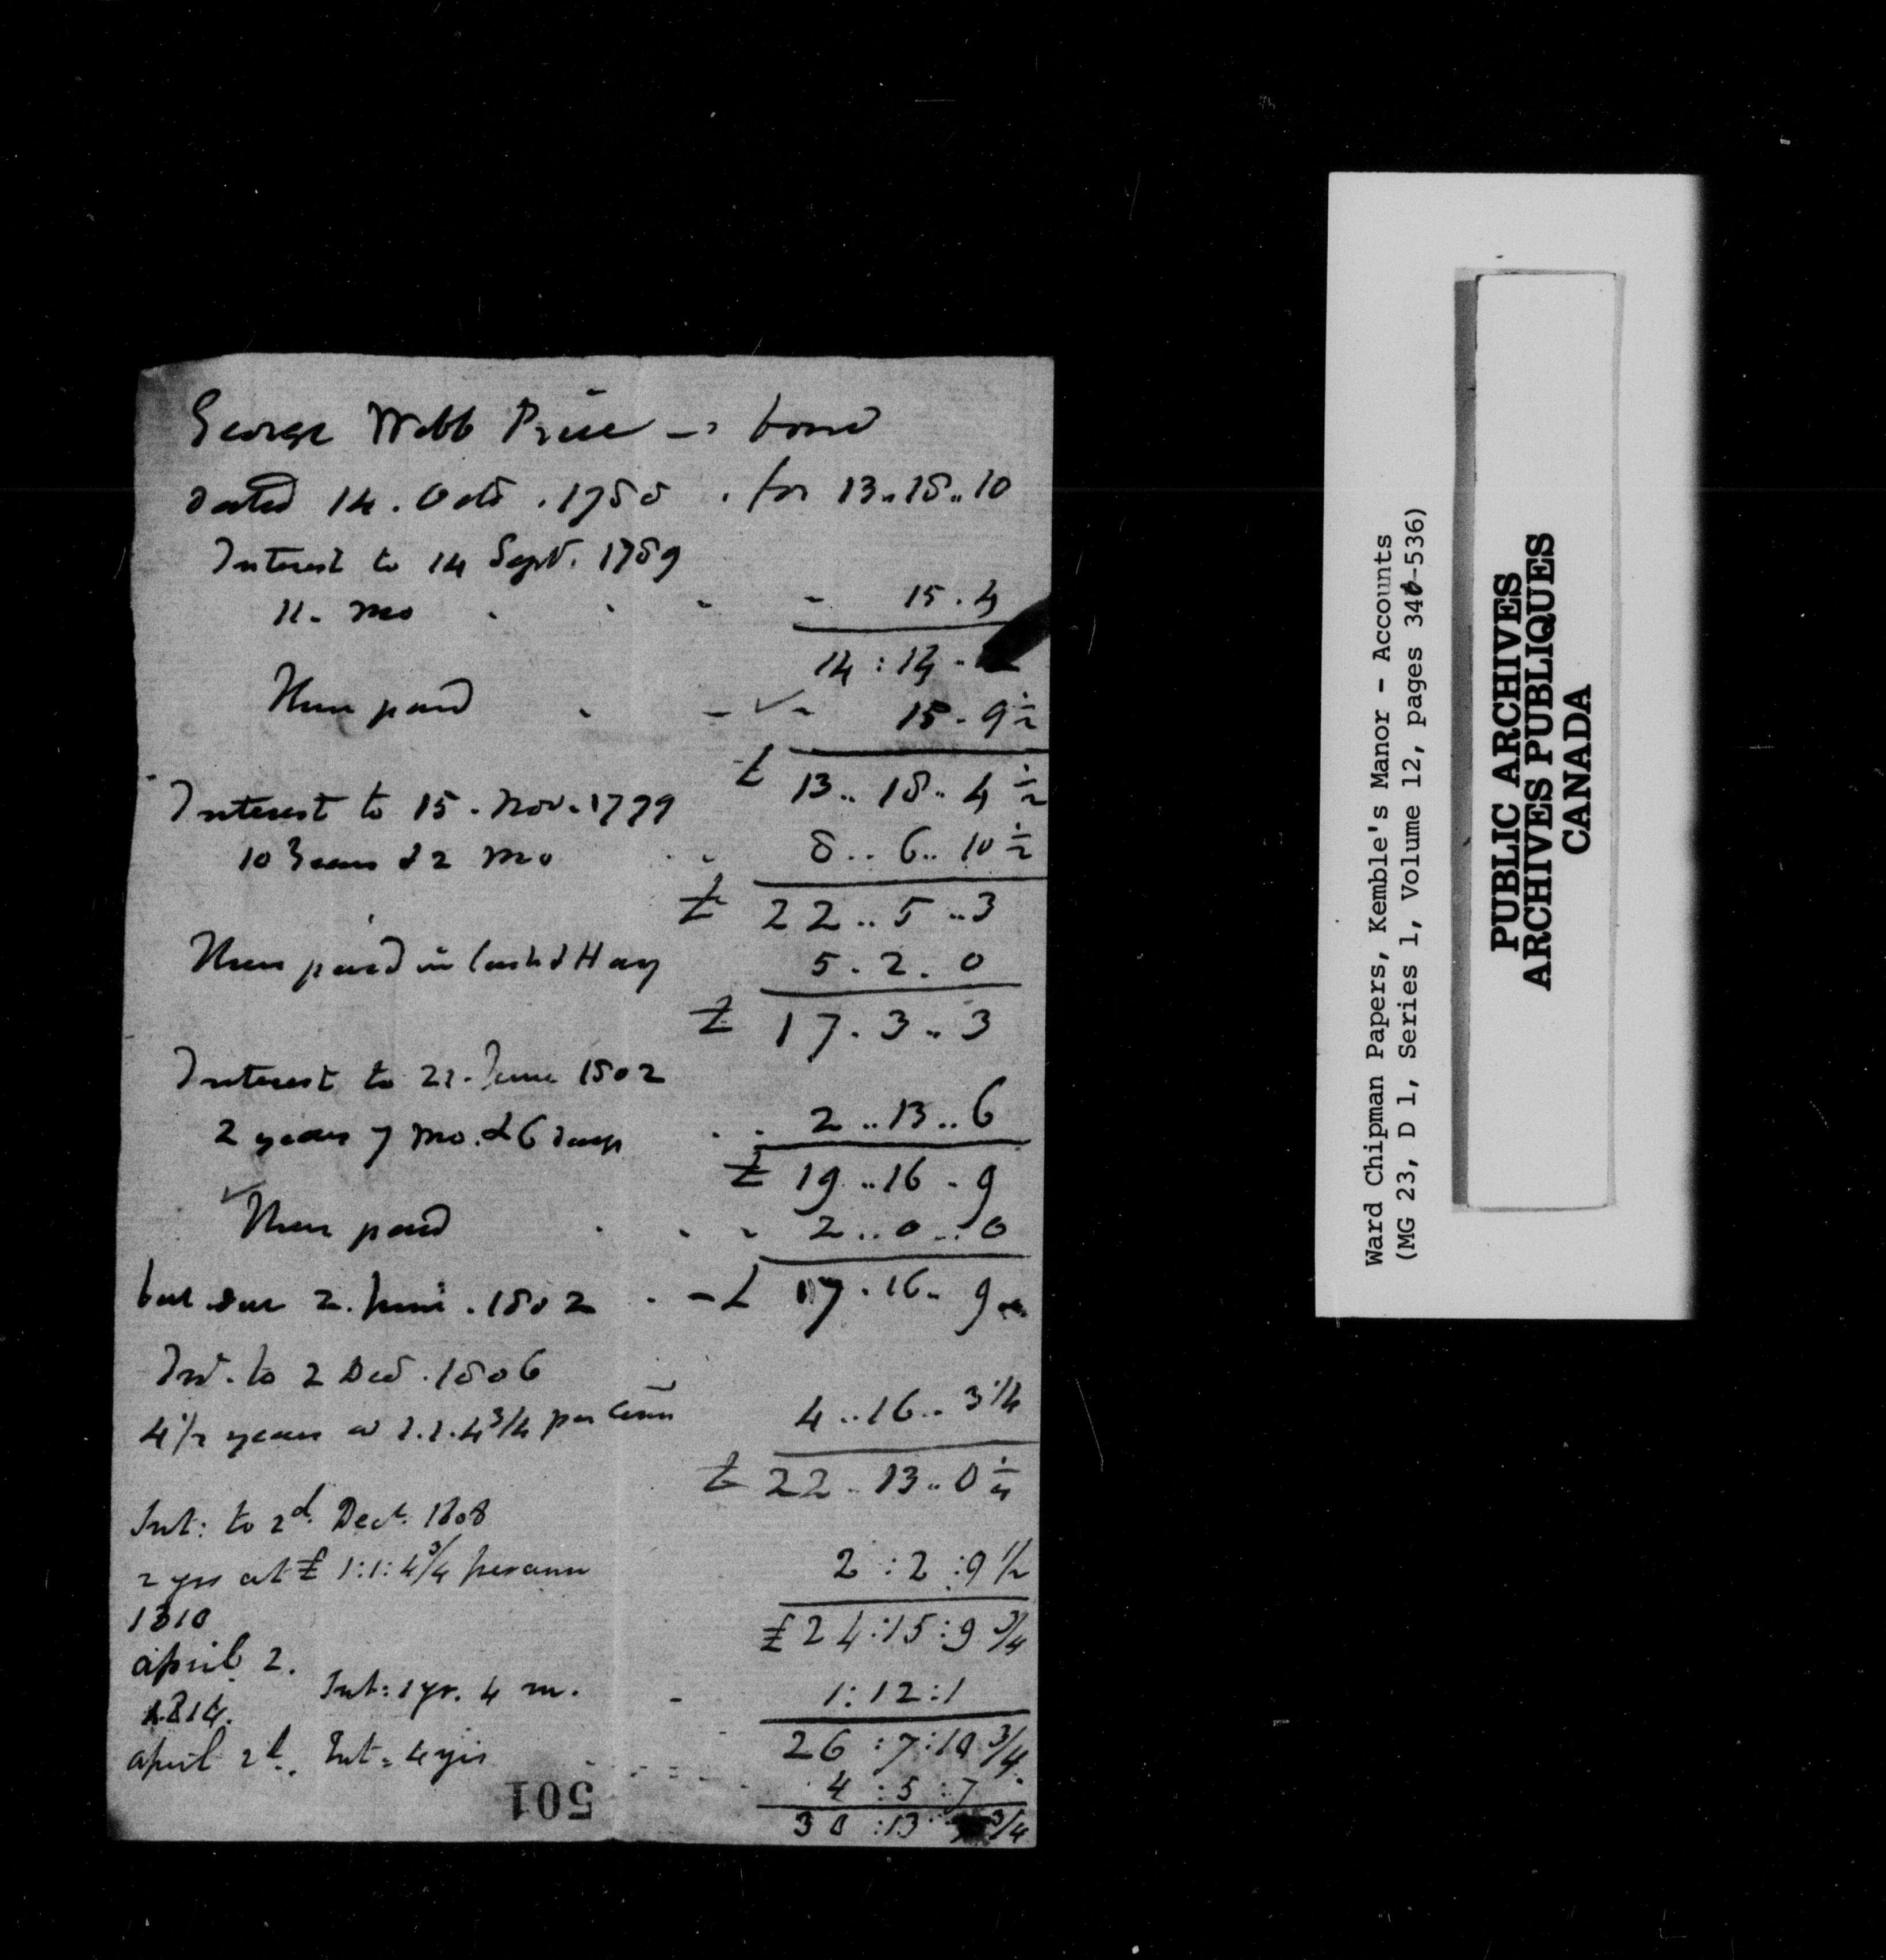 George Webb Price -s bond
dated 14. Octr. 1788 . for 13..18..10
Interest to 14 Sept. 1789
11. mo - - 15.4
14:14.
Then paid - - 15.9½
£ 13..18..4½
Interest to 15. Nov. 1799
10 Years & 2 mo 8..6..10½
£ 22..5..3
Then paid in Cash & Hay 5.2.0
£ 17.3..3
Interest to 21. June 1802
2 years 7 mo. & 6 days 2..13..6
£ 19..16.9
Then paid 2..0..0
bal due 2. June. 1802 - £ 17.16..9
Int. to 2 Decr. 1806
4½ years a 1.1.4¾ per Ann 4..16..3¼
£ 22..13..0¼
Int: to 2d. Decr. 1808
2 yrs at £ 1:1:4¾ per ann 2:2:9½
1810 £ 24:15:9¾
april 2. Int: 1 yr. 4 m. - 1:12:1
1814. 26:7:10¾
april 2d. Int: 4 yrs 4:5:7
30:13: ¾
501
Ward Chipman Papers, Kemble's Manor - Accounts
(MG 23, D 1, Series 1, Volume 12, pages 340-536)
PUBLIC ARCHIVES
ARCHIVES PUBLIQUES
CANADA